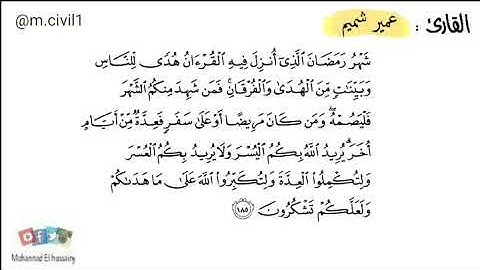 @m.civil1
القارئ : عمير شميم
شَهْرُ رَمَضَانَ الَّذِىٓ أُنزِلَ فِيهِ الْقُرْءَانُ هُدًى لِّلنَّاسِ
وَبَيِّنَٰتٍ مِّنَ الْهُدَىٰ وَالْفُرْقَانِ ۚ فَمَن شَهِدَ مِنكُمُ الشَّهْرَ
فَلْيَصُمْهُ ۖ وَمَن كَانَ مَرِيضًا أَوْ عَلَىٰ سَفَرٍ فَعِدَّةٌ مِّنْ أَيَّامٍ
أُخَرَ ۗ يُرِيدُ اللَّهُ بِكُمُ الْيُسْرَ وَلَا يُرِيدُ بِكُمُ الْعُسْرَ
وَلِتُكْمِلُوا۟ الْعِدَّةَ وَلِتُكَبِّرُوا۟ اللَّهَ عَلَىٰ مَا هَدَىٰكُمْ
وَلَعَلَّكُمْ تَشْكُرُونَ ١٨٥
Mohannad El hussainy